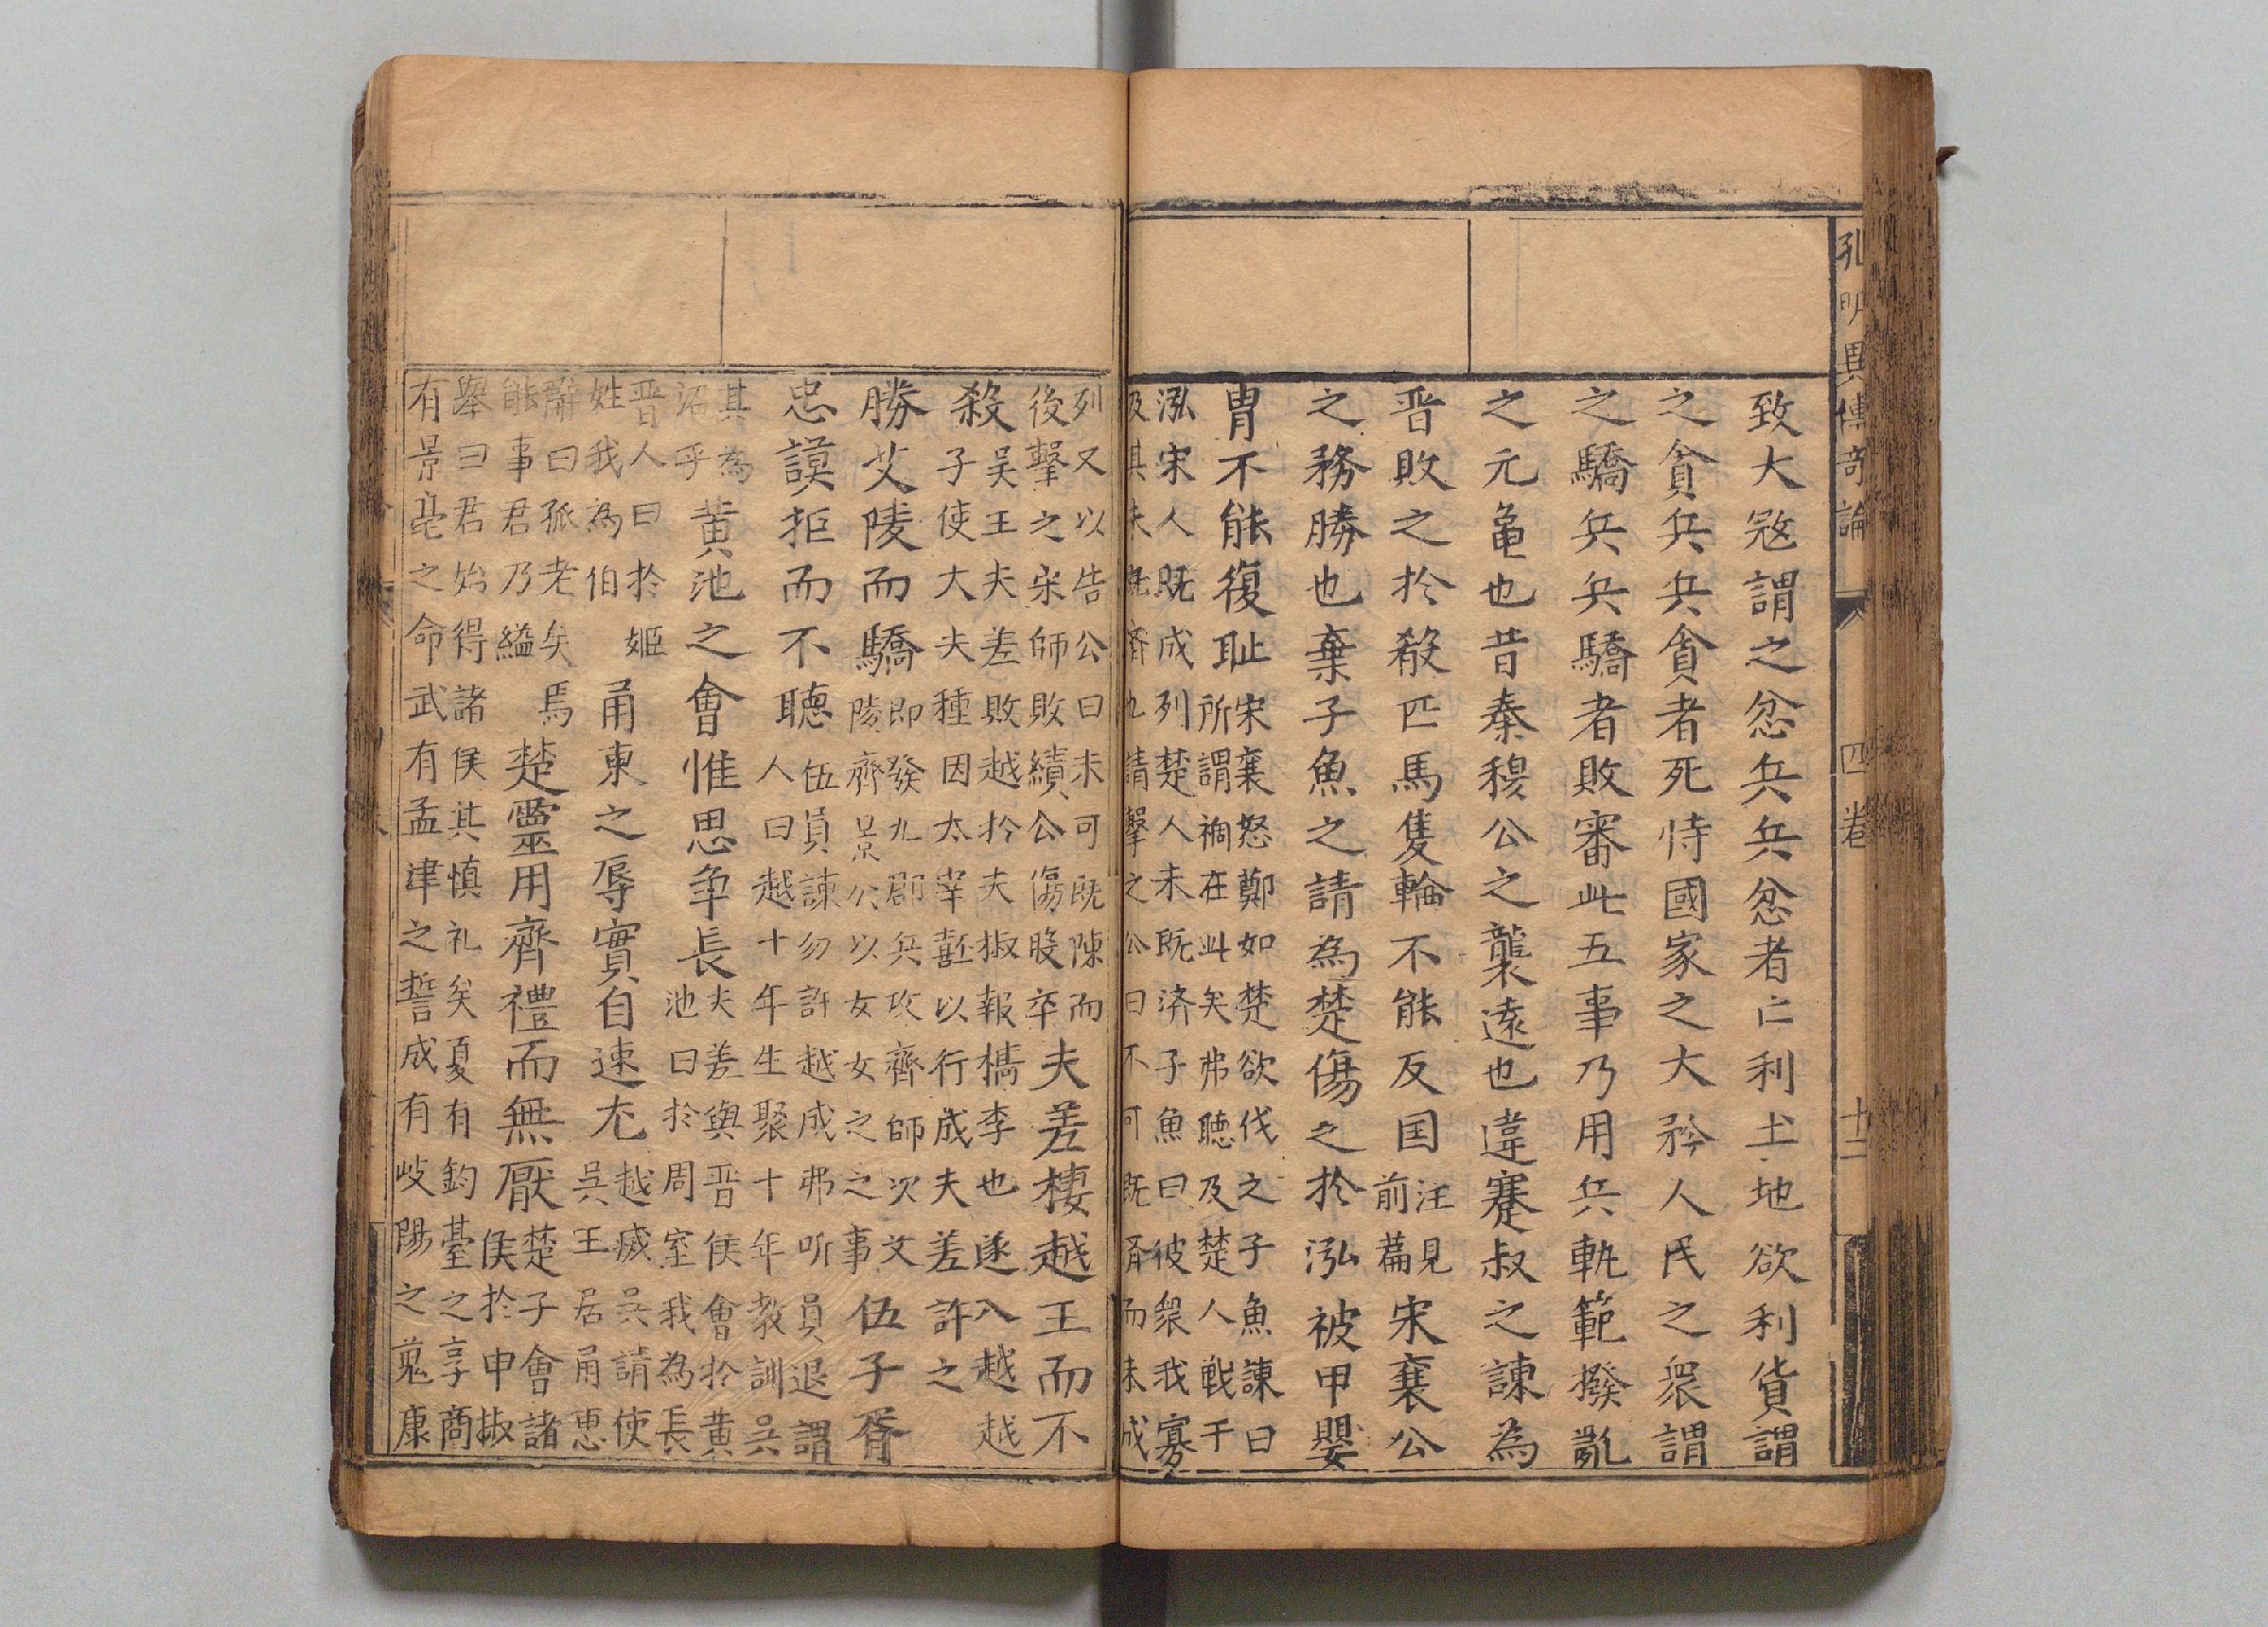 孔明異傳奇論 四卷 十二
致大寇謂之忿兵兵忿者亡利土地欲利貨謂
之貪兵兵貪者死恃國家之大矜人民之衆謂
之驕兵兵驕者敗審此五事乃用兵軌範撥亂
之元龜也昔秦穆公之襲遠也違蹇叔之諫為
晋敗之於殽匹馬隻輪不能反国
汪見
前篇
宋襄公
之務勝也棄子魚之請為楚傷之於泓被甲嬰
冑不能復耻
宋襄怒鄭如楚欲伐之子魚諫曰
所謂禍在此矣弗聴及楚人戦于
泓宋人既成列楚人未既済子魚曰彼衆我寡
及其未既濟也請擊之公曰不可既濟而未成
列又以告公曰未可既陳而
後擊之宋師敗績公傷股卒
夫差棲越王而不
殺
吴王夫差敗越於夫椒報檇李也遂入越越
子使大夫種因太宰嚭以行成夫差許之
勝艾陵而驕
即發九郡兵攻齊師次艾
陵齊景公以女女之之事
伍子胥
忠謨拒而不聴
伍員諫勿許越成弗听員退謂
人曰越十年生聚十年教訓吳
其為
沼乎
黄池之會惟思争長
夫差與晋侯會於黄
池曰於周室我為長
晋人曰於姬
姓我為伯
甬東之辱實自速尤
越㓕吳請使
吳王居甬恵
辭曰孤老矣焉
能事君乃縊
楚靈用齊禮而無厭
楚子會諸
侯於申椒
舉曰君始得諸侯其慎礼矣夏有鈞䑓之享商
有景亳之命武有孟津之誓成有岐陽之蒐康